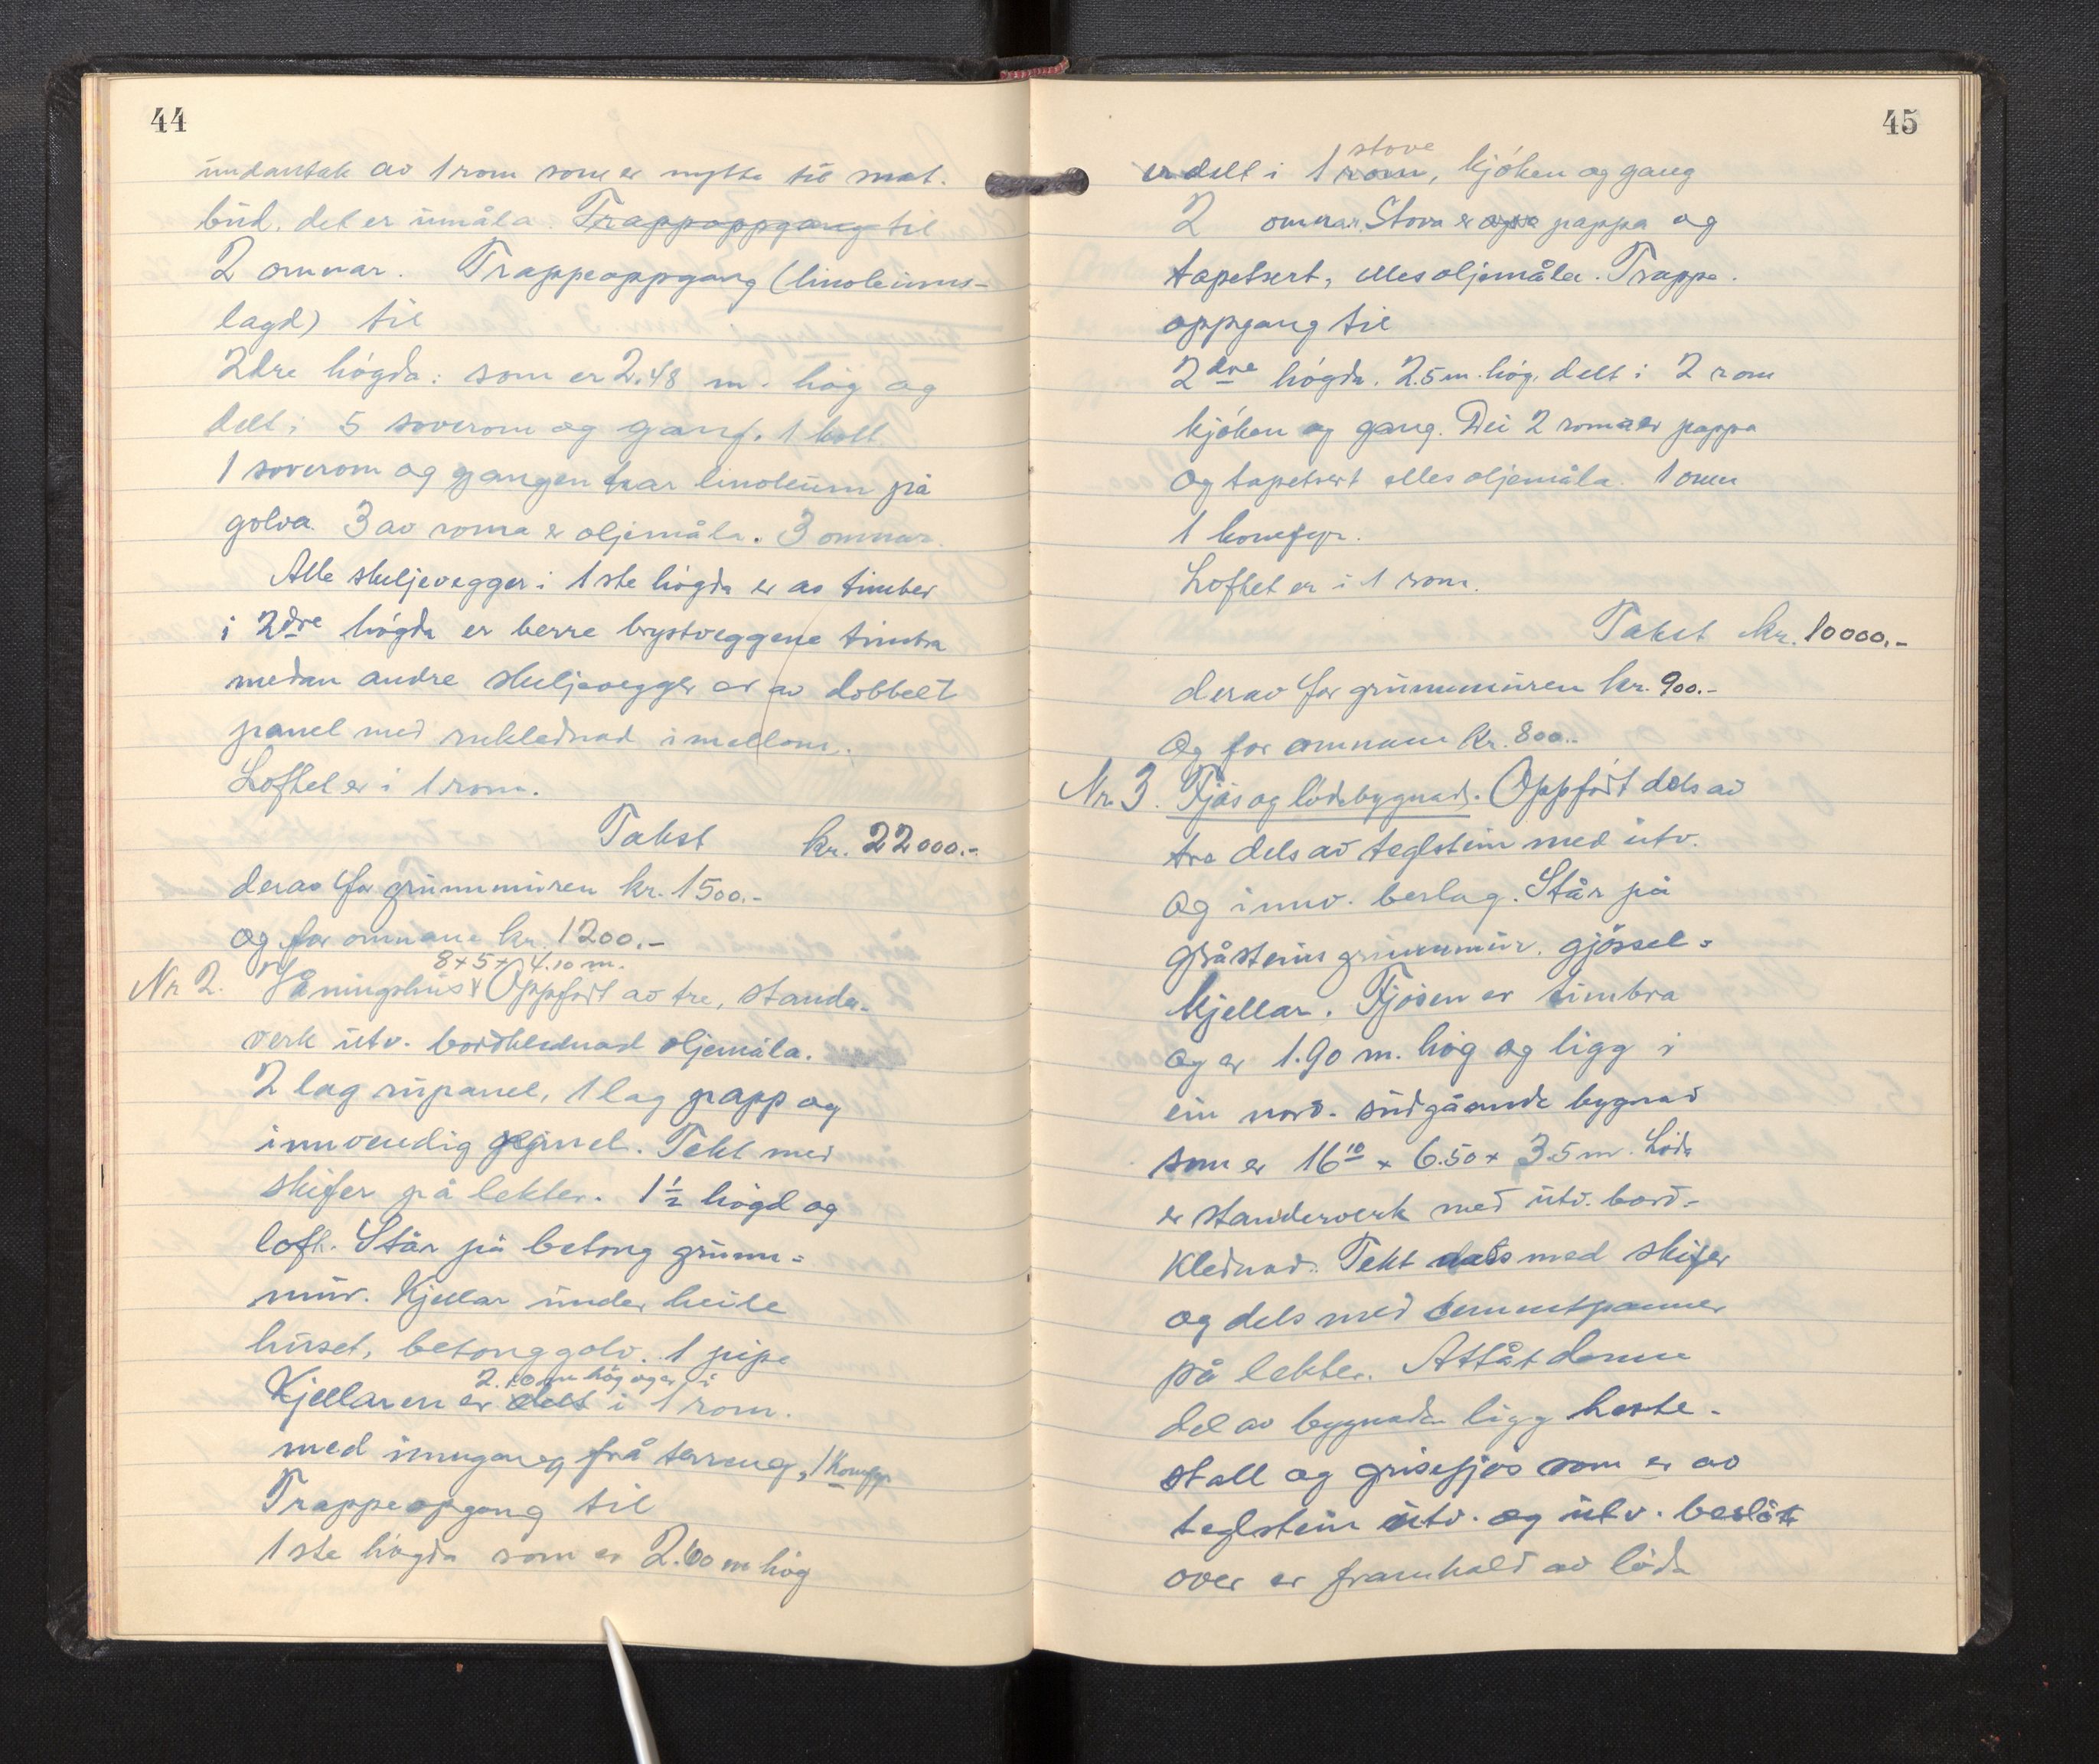 44
undantak av 1 rom som er nytta til mat.
bud. det er umåla. Trappoppgang til
2 omnar. Trappeoppgang (linoleums-
lagd) til
2dre högda: som er 2.48 m. hög og
delt i 5 soverom og gang. 1 kott
1 soverom og gangen har linoleum på
golva. 3 av roma er oljemåla. 3 omnar.
Alle skeljevegger i 1ste högda er av timber
i 2dre högda er berre brystveggene timbra
medan andre skeljevegger er av dobbelt
panel med ruklednad imellom.
Loftet er i 1 rom.
Takst kr. 22000.-
derav for grunnmuren kr. 1500.-
og for omnane kr. 1200.-
8 x 5 x 4.10 m.
Nr 2. Våningshus Oppfört av tre, stander-
verk utv. bordklednad oljemåla.
2 lag rupanel, 1 lag papp og
innvendig panel. Tekt med
skifer på lekter. 1½ högd og
loft. Står på betong grunn=
mur. Kjellar under heile
huset, betonggolv. 1 pipe
2.10 m hög og er i
Kjellaren er delt i 1 rom.
med inngang frå terreng, 1 komfyr
Trappeopgang til
1ste högda som er 2.60 m hög
45
stove
er delt i 1 rom, kjöken og gang
2 omnar. Stova er pappa og
tapetsert, elles oljemåla. Trappe.
oppgang til
2dre högda. 2.5 m. hög. delt i 2 rom
kjöken og gang. Dei 2 roma er pappa
og tapetsert elles oljemåla. 1 omn
1 komfyr.
Loftet er i 1 rom.
Takst kr. 10000.-
derav for grunnmuren kr. 900.-
og for omnane kr. 800.-
Nr. 3. Fjös og lödebygnad. Oppfört dels av
tre dels av teglstein med utv.
og innv. beslag. Står på
gråsteins grunnmur. gjössel=
kjellar. Fjösen er timbra
og er 1.90 m. hög og ligg i
ein nord- sudgåande bygnad
som er 16 10 x 6.50 x 3.5 m. Löda
er standerverk med utv. bord-
klednad. Tekt dels med skifer
og dels med cementpanner
på lekter. Attåt denne
del av bygnaden ligg heste-
stall og grisefjös som er av
teglstein utv. og utv. beslått
over er framhald av löda